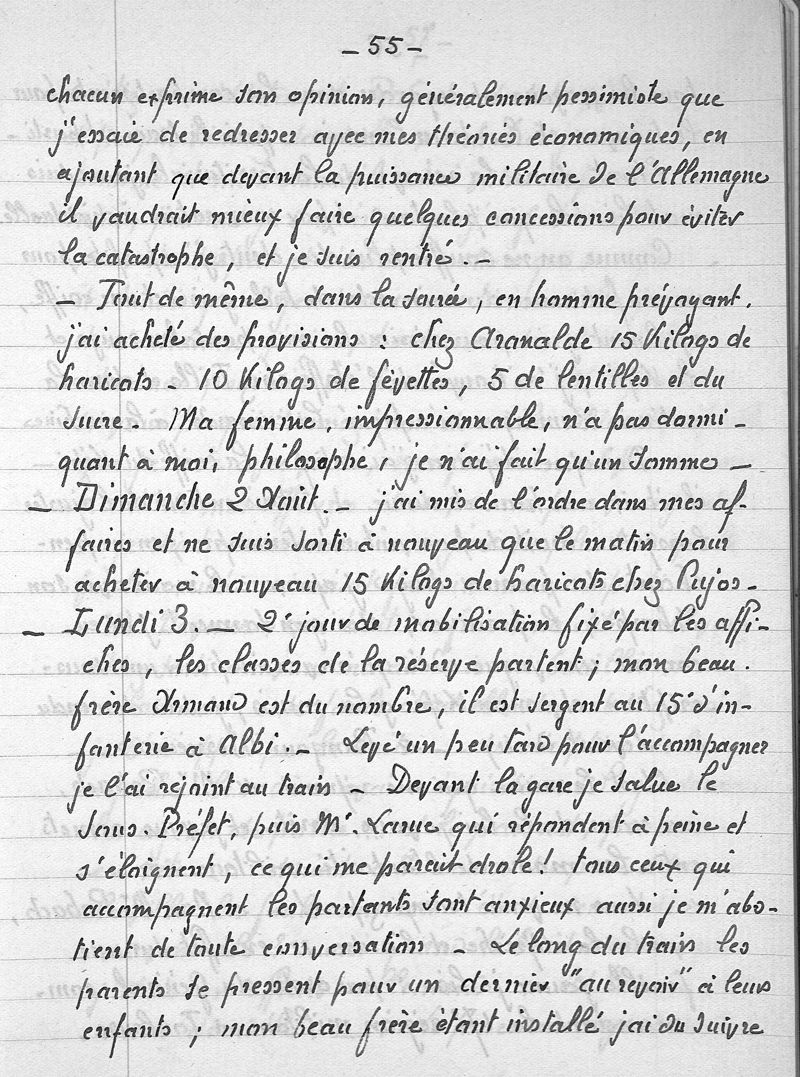 - 55 -
chacun exprime son opinion, généralement pessimiste que
j'essaie de redresser avec mes théories économiques, en
ajoutant que devant la puissance militaire de l'Allemagne
il vaudrait mieux faire quelques concessions pour éviter
la catastrophe, et je suis rentré. -
- Tout de même, dans la soirée, en homme prévoyant.
j'ai acheté des provisions : chez Aranalde 15 Kilogs de
haricots - 10 Kilogs de févettes, 5 de lentilles et du
sucre - Ma femme, impressionnable, n'a pas dormi -
quant à moi, philosophe, je n'ai fait qu'un somme -
- Dimanche 2 Août. - j'ai mis de l'ordre dans mes af-
faires et ne suis sorti à nouveau que le matin pour
acheter à nouveau 15 Kilogs de haricots chez Pujos -
- Lundi 3. - 2e jour de mobilisation fixé par les affi-
ches, les classes de la réserve partent ; mon beau.
frère Armand est du nombre, il est sergent au 15e d'in-
fanterie à Albi. - Levé un peu tard pour l'accompagner
je l'ai rejoint au train - Devant la gare je salue le
Sous. Préfet, puis Mr. Larue qui répondent à peine et
s'éloignent, ce qui me parait drole ! tous ceux qui
accompagnent les partants sont anxieux aussi je m'abs-
tient de toute conversation - Le long du train les
parents se pressent pour un dernier "au revoir" à leurs
enfants ; mon beau frère étant installé j'ai du suivre